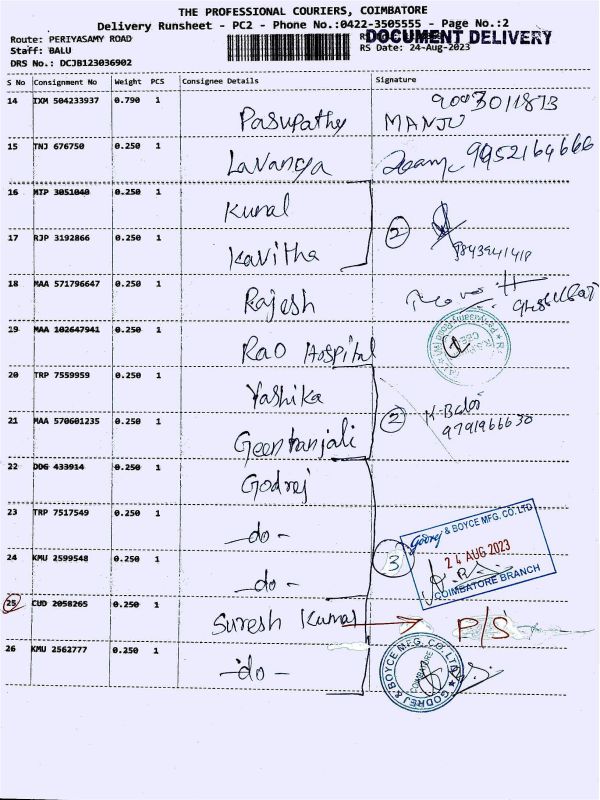 THE PROFESSIONAL COURIERS, COIMBATORE
Delivery Runsheet - PC2 - Phone No.:0422-3505555 - Page No.:2
Route: PERIYASAMY ROAD
DOCUMENT DELIVERY
Staff: BALU
RS Date: 24-Aug-2023
DRS No.: DCJB123036902
S No Consignment No Weight PCS Consignee Details Signature
14 IXM 504233937 0.790 1 Pasupathy MANJU 9003011873
15 TNJ 676750 0.250 1 Lavanya 9952164666
16 MTP 3051040 0.250 1 Kunal
17 RJP 3192866 0.250 1 Kavitha 2 9843941418
18 MAA 571796647 0.250 1 Rajesh
19 MAA 102647941 0.250 1 Rao Hospital
20 TRP 7559959 0.250 1 Yashika
21 MAA 570601235 0.250 1 Geenthanjali 2 9791966630
22 DDG 433914 0.250 1 Godrej
23 TRP 7517549 0.250 1 -do-
24 KMU 2599548 0.250 1 -do- 3
Godrej & BOYCE MFG. CO. LTD
24 AUG 2023
COIMBATORE BRANCH
25 CUD 2058265 0.250 1 Suresh Kumar P/S
26 KMU 2562777 0.250 1 -do-
GODREJ & BOYCE MFG. CO. LTD.
COIMBATORE